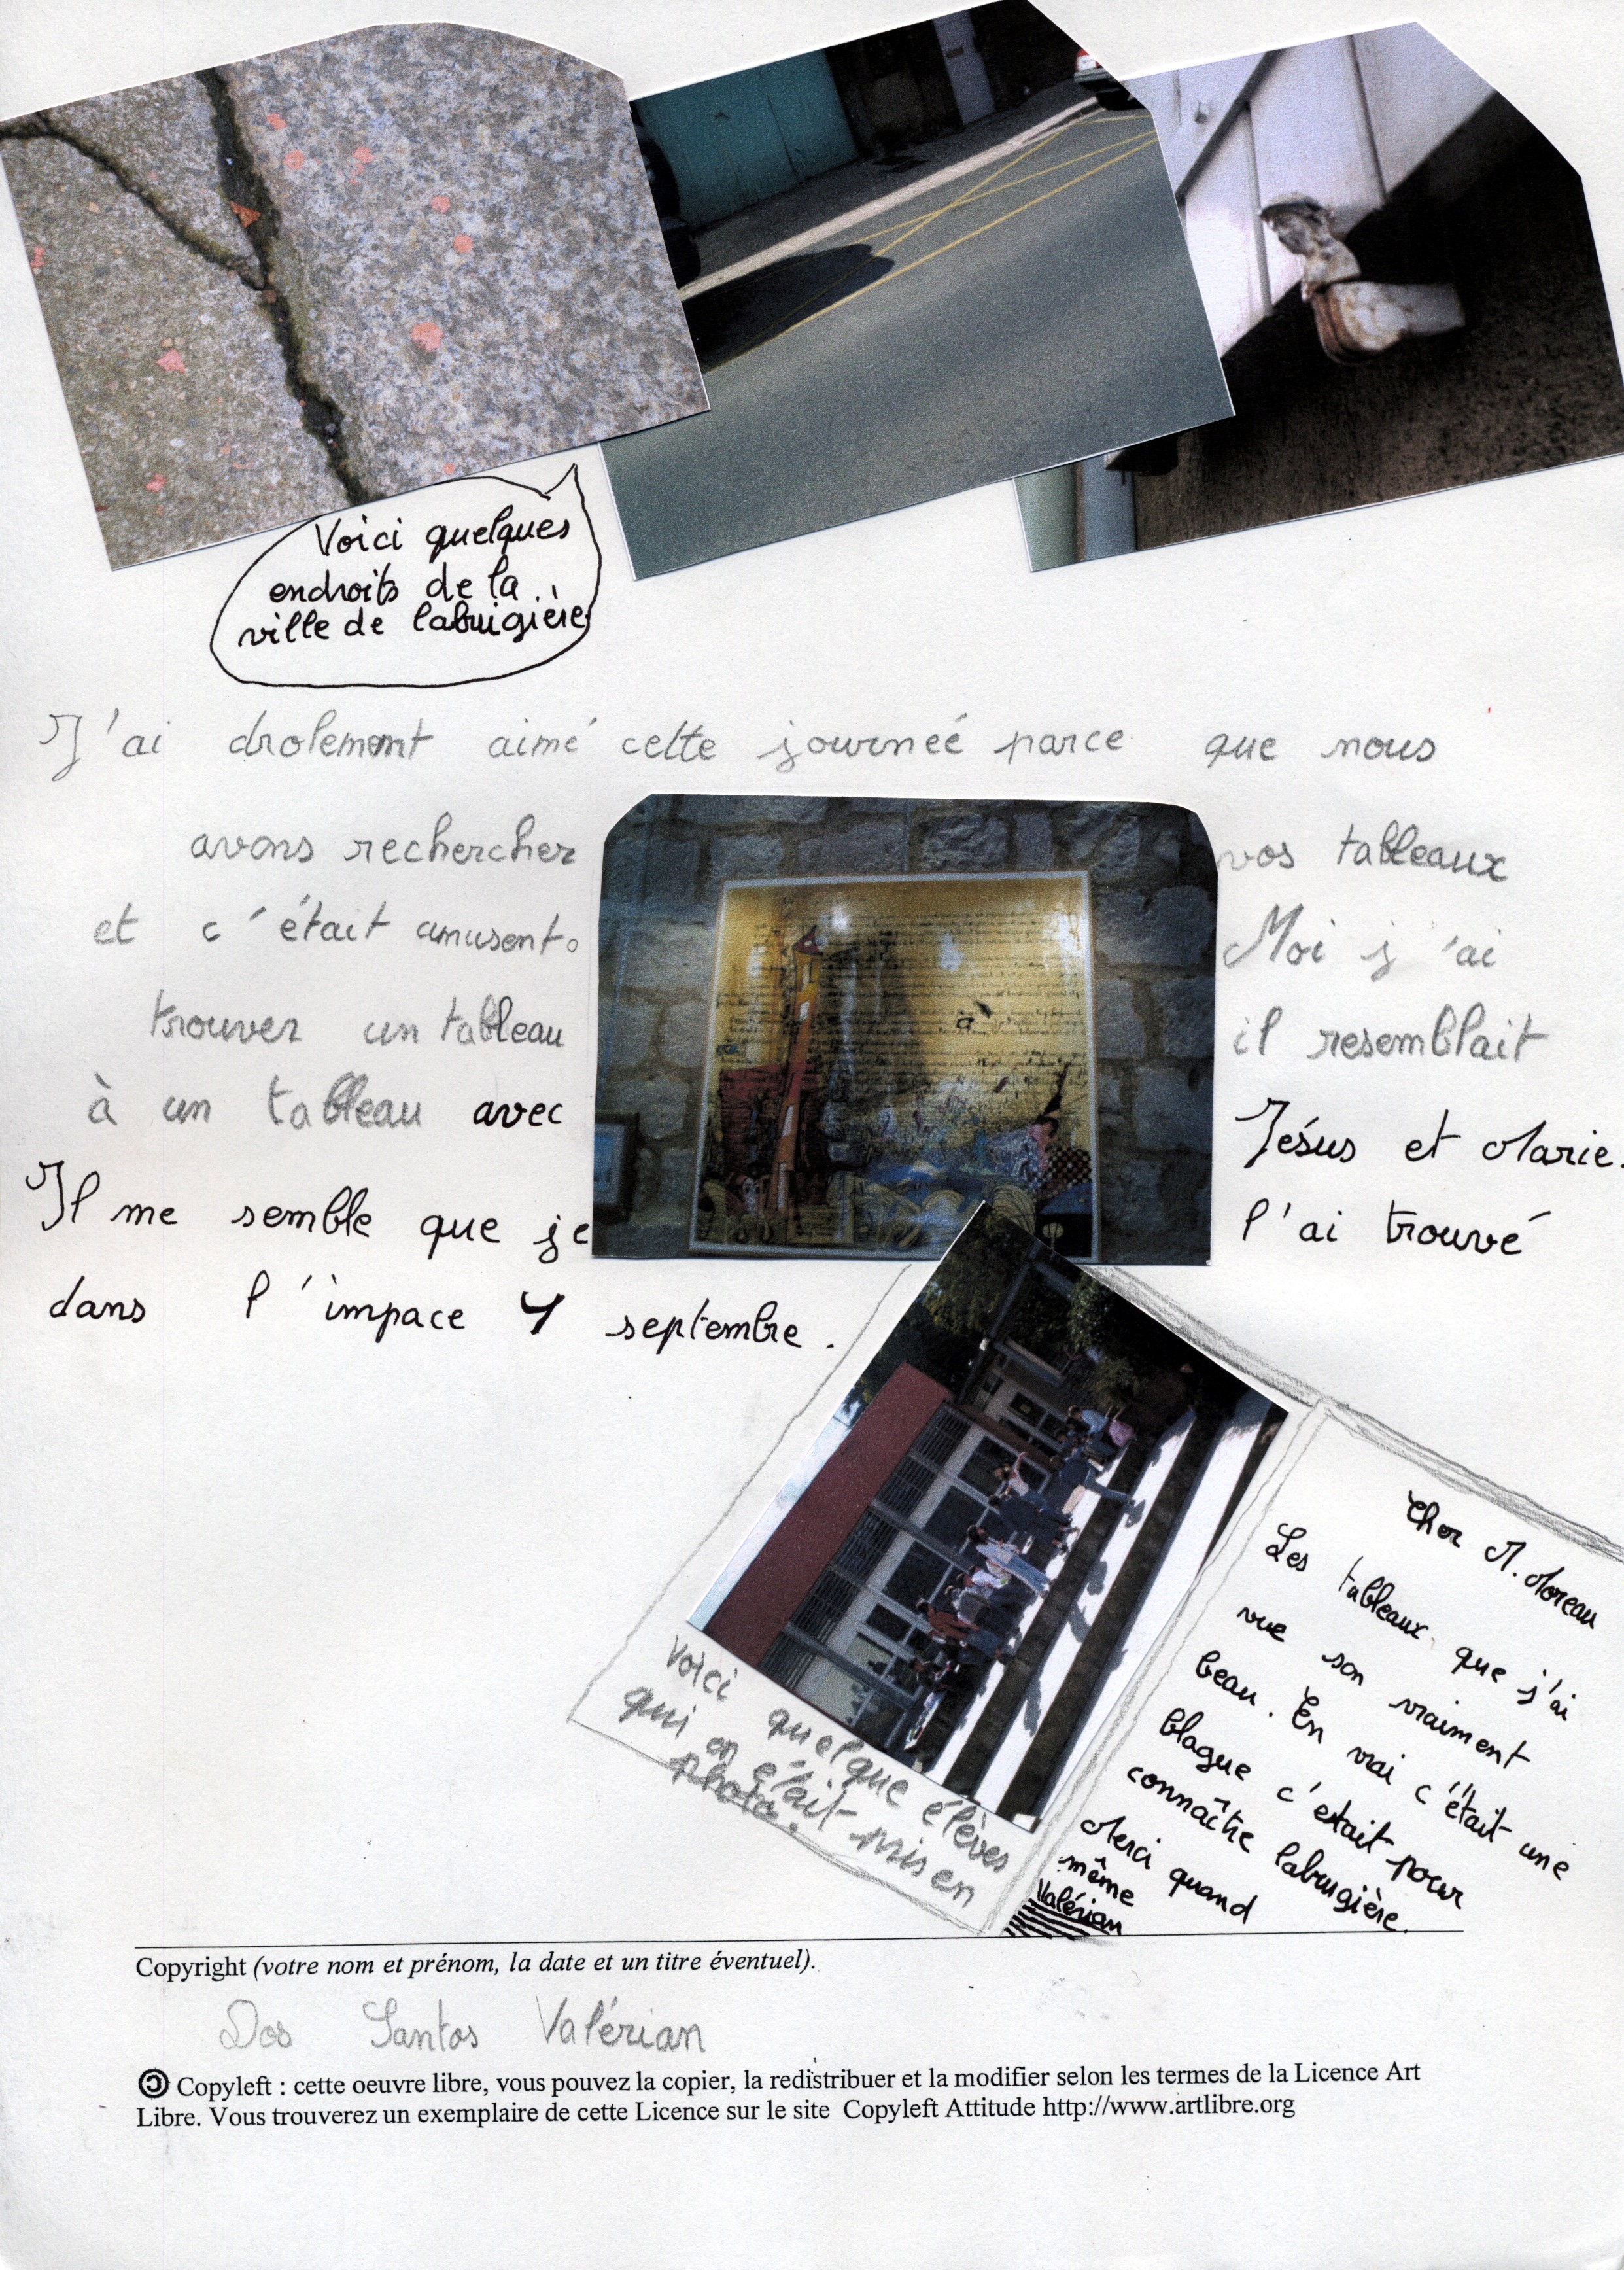 Voici quelques
endroits de la
ville de labruigière
J'ai drolement aimé cette journeé parce que nous
avons rechercher vos tableaux
et c'était amusent. Moi j'ai
trouver un tableau il resemblait
à un tableau avec Jésus et Marie.
Il me semble que je l'ai trouvé
dans l'impace 4 septembre.
Voici quelque élèves
qui on était pris en
photo.
Cher M. Moreau
Les tableaux que j'ai
vue son vraiment
beau. En vrai c'était une
blague c'etait pour
connaître labrugière.
Merci quand
même
Valérian
Copyright (votre nom et prénom, la date et un titre éventuel).
Dos Santos Valérian
Copyleft : cette oeuvre libre, vous pouvez la copier, la redistribuer et la modifier selon les termes de la Licence Art
Libre. Vous trouverez un exemplaire de cette Licence sur le site Copyleft Attitude http://www.artlibre.org